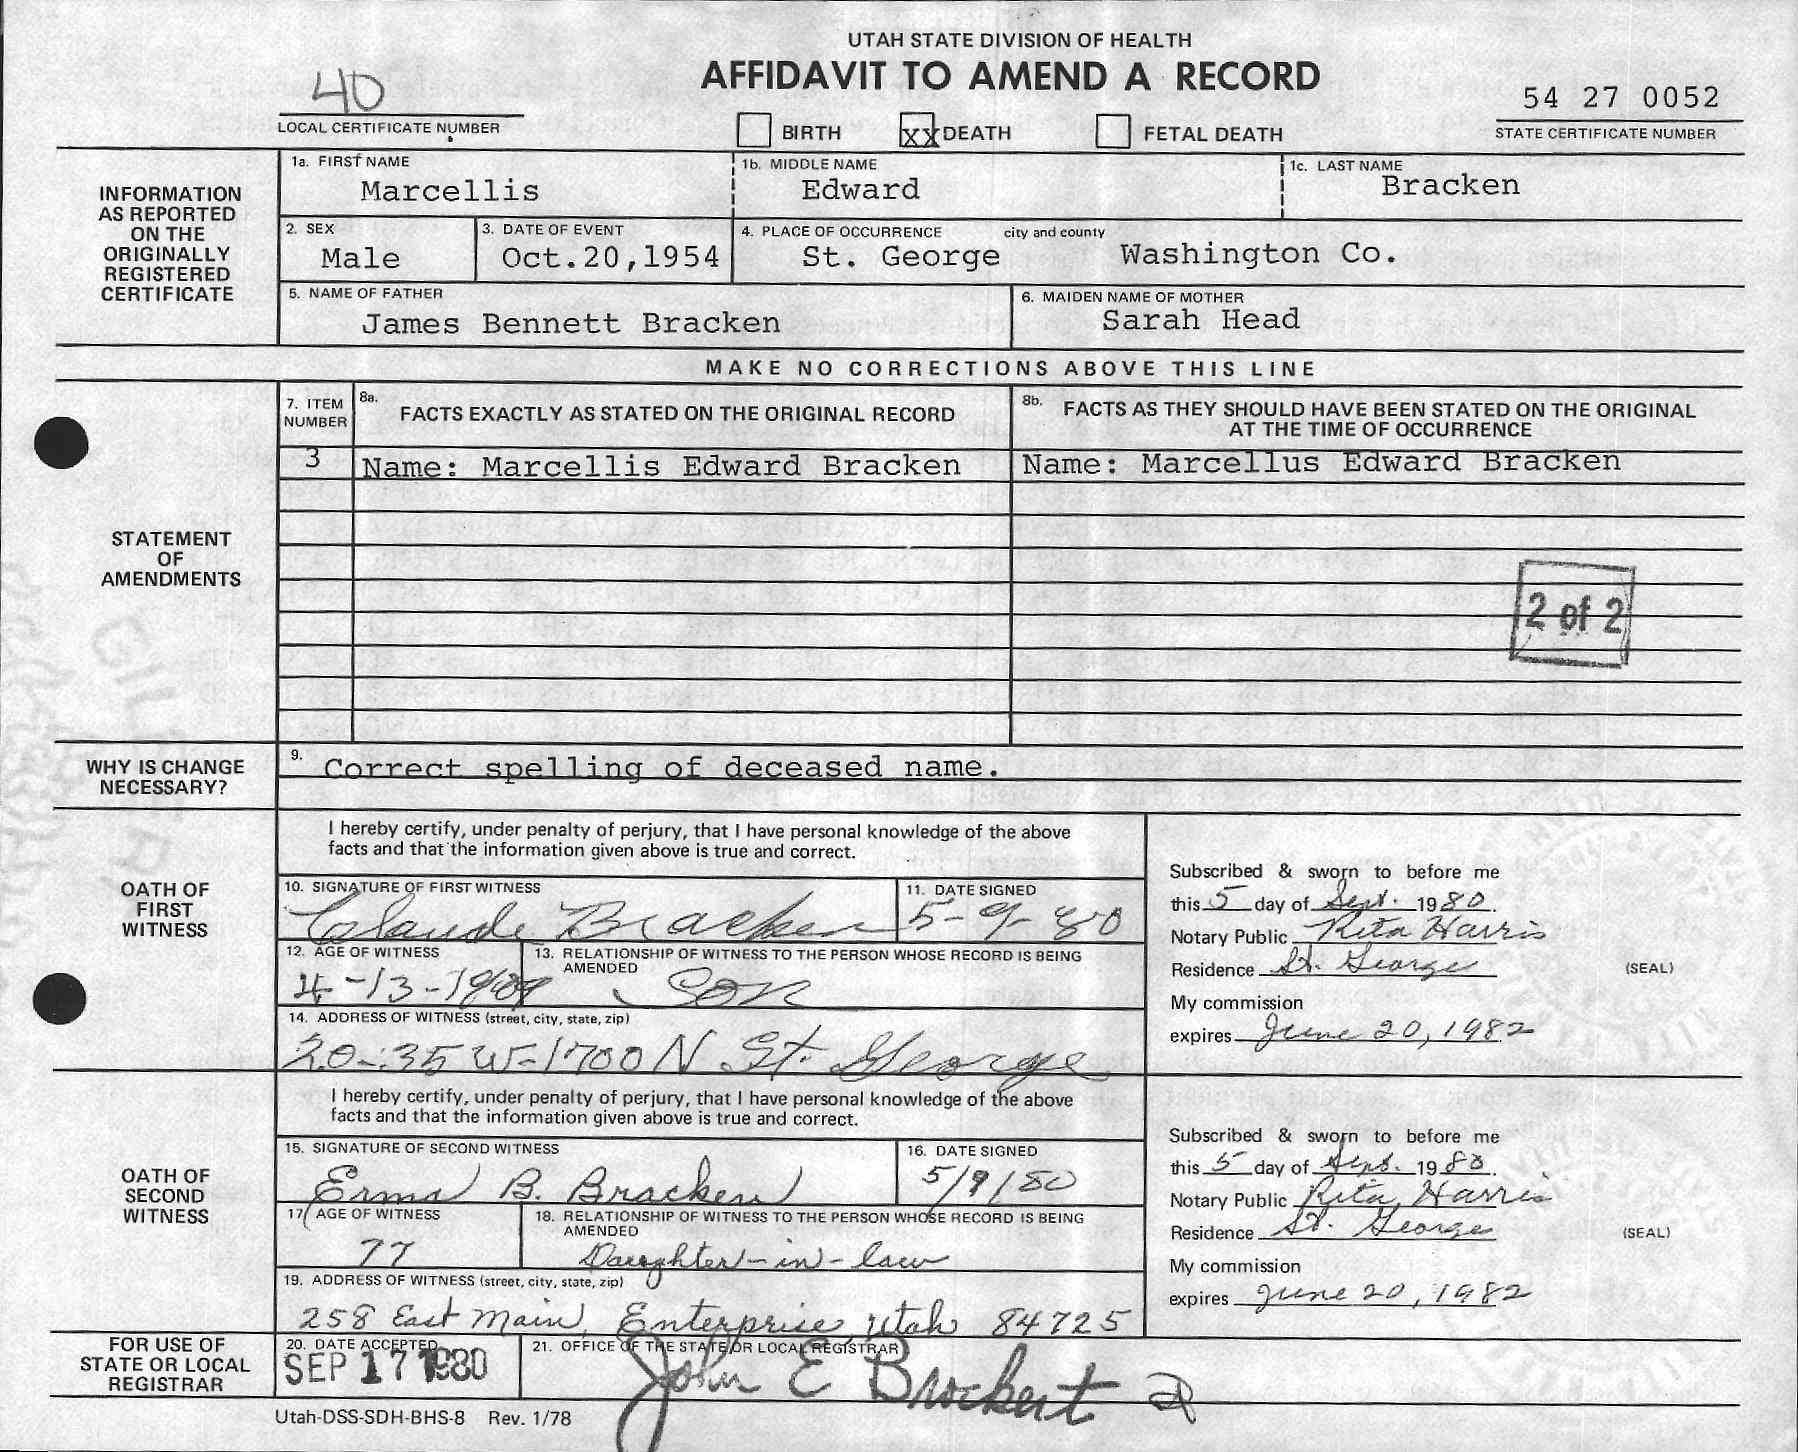 UTAH STATE DIVISION OF HEALTH
AFFIDAVIT TO AMEND A RECORD
40
LOCAL CERTIFICATE NUMBER
BIRTH XX DEATH FETAL DEATH
54 27 0052
STATE CERTIFICATE NUMBER
INFORMATION AS REPORTED ON THE ORIGINALLY REGISTERED CERTIFICATE
1a. FIRST NAME 1b. MIDDLE NAME 1c. LAST NAME
Marcellis Edward Bracken
2. SEX 3. DATE OF EVENT 4. PLACE OF OCCURRENCE city and county
Male Oct.20,1954 St. George Washington Co.
5. NAME OF FATHER 6. MAIDEN NAME OF MOTHER
James Bennett Bracken Sarah Head
MAKE NO CORRECTIONS ABOVE THIS LINE
STATEMENT OF AMENDMENTS
7. ITEM NUMBER 8a. FACTS EXACTLY AS STATED ON THE ORIGINAL RECORD 8b. FACTS AS THEY SHOULD HAVE BEEN STATED ON THE ORIGINAL AT THE TIME OF OCCURRENCE
3 Name: Marcellis Edward Bracken Name: Marcellus Edward Bracken
2 of 2
WHY IS CHANGE NECESSARY?
9. Correct spelling of deceased name.
OATH OF FIRST WITNESS
I hereby certify, under penalty of perjury, that I have personal knowledge of the above
facts and that the information given above is true and correct.
10. SIGNATURE OF FIRST WITNESS 11. DATE SIGNED
Claude Bracken 5-9-80
12. AGE OF WITNESS 13. RELATIONSHIP OF WITNESS TO THE PERSON WHOSE RECORD IS BEING AMENDED
4-13- Son
14. ADDRESS OF WITNESS (street, city, state, zip)
20-35 W-1700 N St. George
Subscribed & sworn to before me
this 5 day of Sept. 1980.
Notary Public Rita Harris
Residence St. George (SEAL)
My commission
expires June 20, 1982
OATH OF SECOND WITNESS
I hereby certify, under penalty of perjury, that I have personal knowledge of the above
facts and that the information given above is true and correct.
15. SIGNATURE OF SECOND WITNESS 16. DATE SIGNED
Erma B. Bracken 5/9/80
17. AGE OF WITNESS 18. RELATIONSHIP OF WITNESS TO THE PERSON WHOSE RECORD IS BEING AMENDED
77 Daughter-in-law
19. ADDRESS OF WITNESS (street, city, state, zip)
258 East Main, Enterprise, Utah 84725
Subscribed & sworn to before me
this 5 day of Sept. 1980.
Notary Public Rita Harris
Residence St. George (SEAL)
My commission
expires June 20, 1982
FOR USE OF STATE OR LOCAL REGISTRAR
20. DATE ACCEPTED 21. OFFICE OF THE STATE OR LOCAL REGISTRAR
SEP 17 1980 John E Brockert
Utah-DSS-SDH-BHS-8 Rev. 1/78